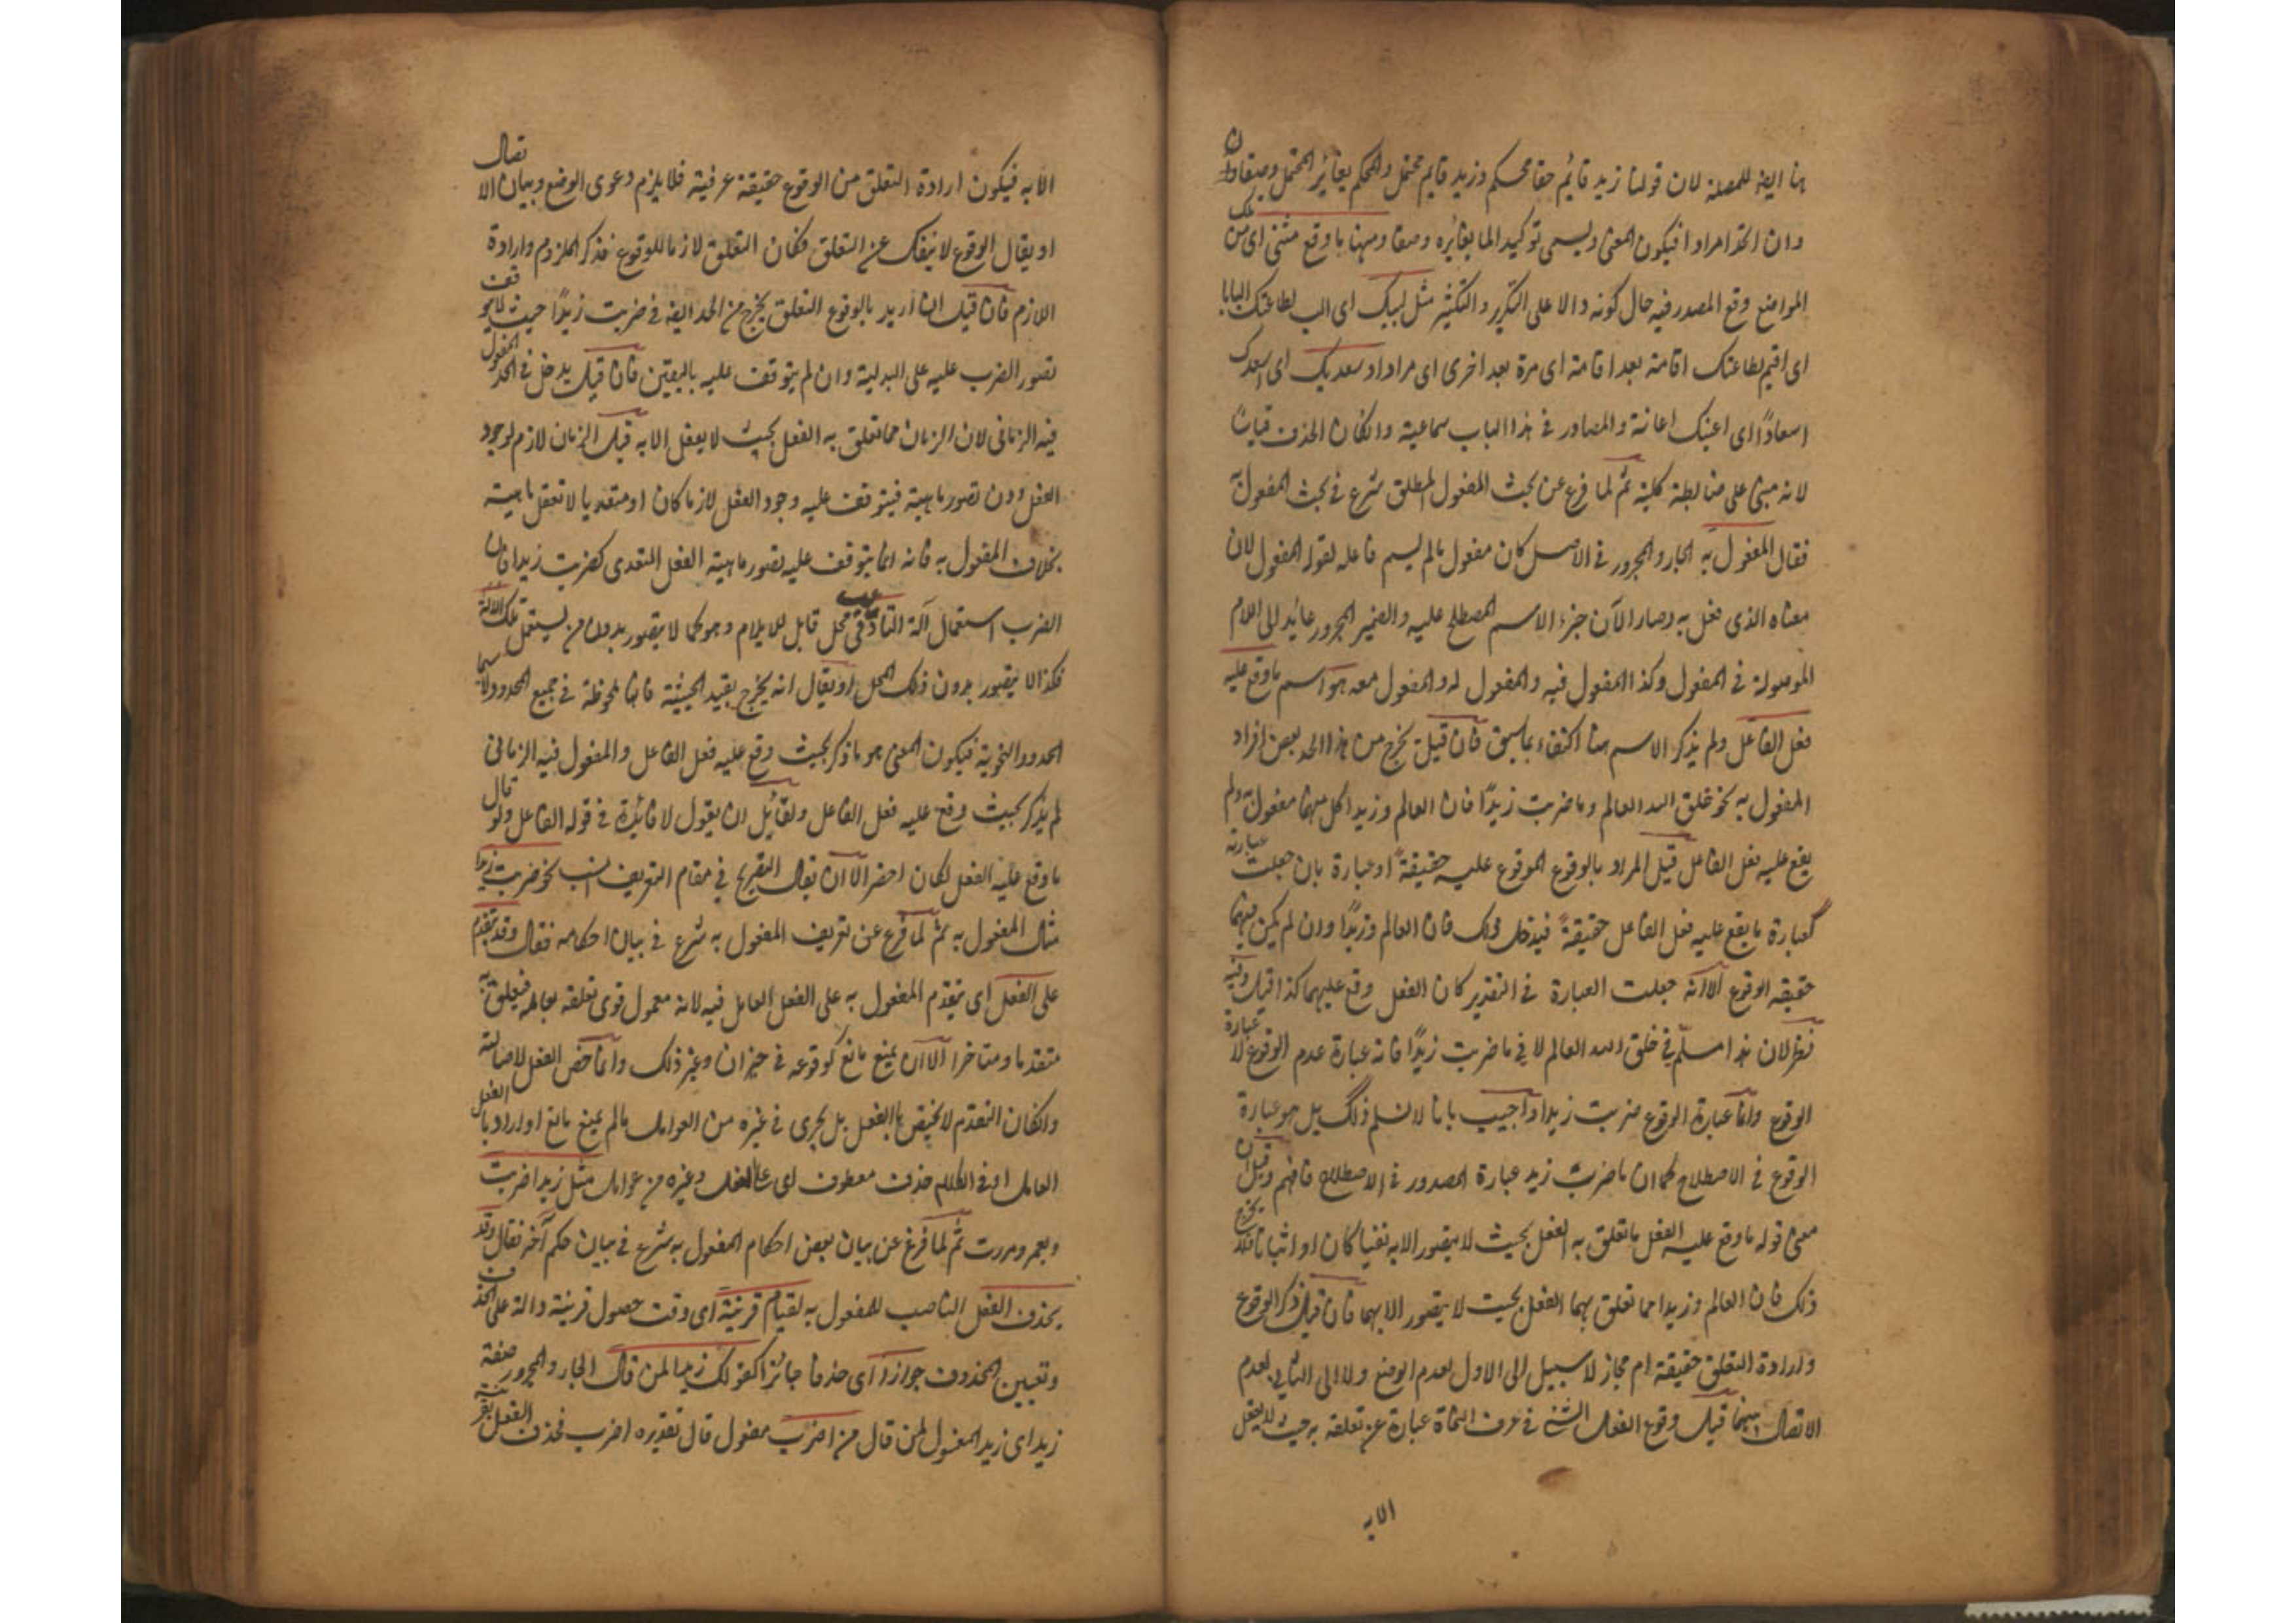 هنا ايضا للمصدر لان قولنا زيد قائم حقا محكم وزيد قايم محتمل والمحكم يغائر المحتمل وصفا وان
وان اتحدا مرادا فيكون المعنى ويسمى توكيدا لما يغائره وصفا ومنها ما وقع مثنى اى من تلك
المواضع وقع المصدر فيه حال كونه دالا على التكرير والتكثير مثل لبيك اى الب لطاعتك البابا
اى اقيم لطاعتك اقامة بعد اقامة اى مرة بعد اخرى اى مرادا وسعديك اى اسعدك
اسعادًا اى اعينك اعانة والمصادر فى هذا الباب سماعية وانكان الحذف قياسا
لانه مبنى على ضابطة كلية ثم لما فرغ عن بحث المفعول المطلق شرع فى بحث المفعول به
فقال المفعول به الجار والمجرور فى الاصل كان مفعول مالم يسم فاعله لقوله المفعول لان
معناه الذى فعل به وصار الآن جزء الاسم المصطلح عليه والضمير المجرور عائد الى اللام
الموصولة فى المفعول وكذا المفعول فيه والمفعول له والمفعول معه هو اسم ما وقع عليه
فعل الفاعل ولم يذكر الاسم هنا اكتفاء بما سبق فان قيل يخرج من هذا الحد بعض افراد
المفعول به نحو خلق الله العالم وما ضربت زيدًا فان العالم وزيدا كل منهما مفعول به ولم
يقع عليه فعل الفاعل قيل المراد بالوقوع الموقوع عليه حقيقةً او عبارة بان جعلت عبارته
كعبارة ما يقع عليه فعل الفاعل حقيقةً فيدخل ذلك فان العالم وزيدًا وان لم يكن فيهما
حقيقة الوقوع الا انه جعلت العبارة فى التقدير كان الفعل وقع عليهما كذا قيل وفيه
نظر لان هذا مسلّم فى خلق الله العالم لا فى ما ضربت زيدًا فانه عبارة عدم الوقوع لا عبارة
الوقوع وانما عبارة الوقوع ضربت زيدا واجيب بانا لا نسلم ذلك بل هو عبارة
الوقوع فى الاصطلاح كما ان ما ضرب زيد عبارة الصدور فى الاصطلاح فافهم وقيل ان
معنى قوله ما وقع عليه الفعل ما تعلق به الفعل بحيث لا يتصور الا به نفيا كان او اثباتا فلا يخرج
ذلك فان العالم وزيدا مما تعلق بهما الفعل بحيث لا يتصور الا بهما فان قيل ذكر الوقوع
وارادة التعلق حقيقة ام مجاز لا سبيل الى الاول لعدم الوضع ولا الى الثانى لعدم
الاتصال بينهما قيل وقوع الفعل الشئ فى عرف النحاة عبارة عن تعلقه به حيث لا يعقل
الا به
الا به فيكون ارادة التعلق من الوقوع حقيقة عرفية فلا يلزم دعوى الوضع وبيان الاتصال
او يقال الوقوع لا ينفك عن التعلق فكان التعلق لازما للوقوع فذكر الملزوم وارادة
اللازم فان قيل اذا اريد بالوقوع التعلق يخرج من الحد ايضا فى ضربت زيدًا حيث لا يتوقف
تصور الضرب عليه على البدلية وان لم يتوقف عليه باليقين فان قيل يدخل فى الحد المفعول
فيه الزمانى لان الزمان مما تعلق به الفعل بحيث لا يعقل الا به قيل الزمان لازم لوجود
الفعل دون تصور ماهية فيتوقف عليه وجود الفعل لازما كان او متعديا لا تعقل ماهيته
بخلاف المفعول به فانه انما يتوقف عليه تصور ماهية الفعل المتعدى كضربت زيدا فان
الضرب استعمال آلة التأديب فى محل قابل للايلام وهو كما لا يتصور بدون من يستعمل تلك الآلة
فكذا لا يتصور بدون ذلك المحل او يقال انه يخرج بقيد الحيثية فانها ملحوظة فى جميع الحدود لا سيما
الحدود النحوية فيكون المعنى هو ما ذكر بحيث وقع عليه فعل الفاعل والمفعول فيه الزمانى
لم يذكر بحيث وقع عليه فعل الفاعل ولقائل ان يقول لا فائدة فى قوله الفاعل ولو قال
ما وقع عليه الفعل لكان اخصر الا ان يقال التصريح فى مقام التعريف انسب نحو ضربت زيدا
مثال المفعول به ثم لما فرغ عن تعريف المفعول به شرع فى بيان احكامه فقال وقد يتقدم
على الفعل اى يتقدم المفعول به على الفعل العامل فيه لانه معمول قوى تعلقه بعامله فيعلق به
متقدما ومتاخرا الا ان يمنع مانع كوقوعه فى حيز ان وغير ذلك وانما خص الفعل لاصالته
وانكان التقدم لا يختص بالفعل بل يجرى فى غيره من العوامل مالم يمنع مانع او اراد بالفعل
العامل او فى الكلام حذف معطوف اى على الفعل وغيره من عوامله مثل زيدا ضربت
وبعمرو مررت ثم لما فرغ عن بيان بعض احكام المفعول به شرع فى بيان حكم آخر فقال وقد
يحذف الفعل الناصب للمفعول به لقيام قرينة اى وقت حصول قرينة دالة على الحذف
وتعيين المحذوف جوازا اى حذفا جائزا كقولك زيدا لمن قال الجار والمجرور صفة
زيدا اى زيدا المفعول لمن قال من اضرب مفعول قال تقديره اضرب فحذف الفعل بقرينة